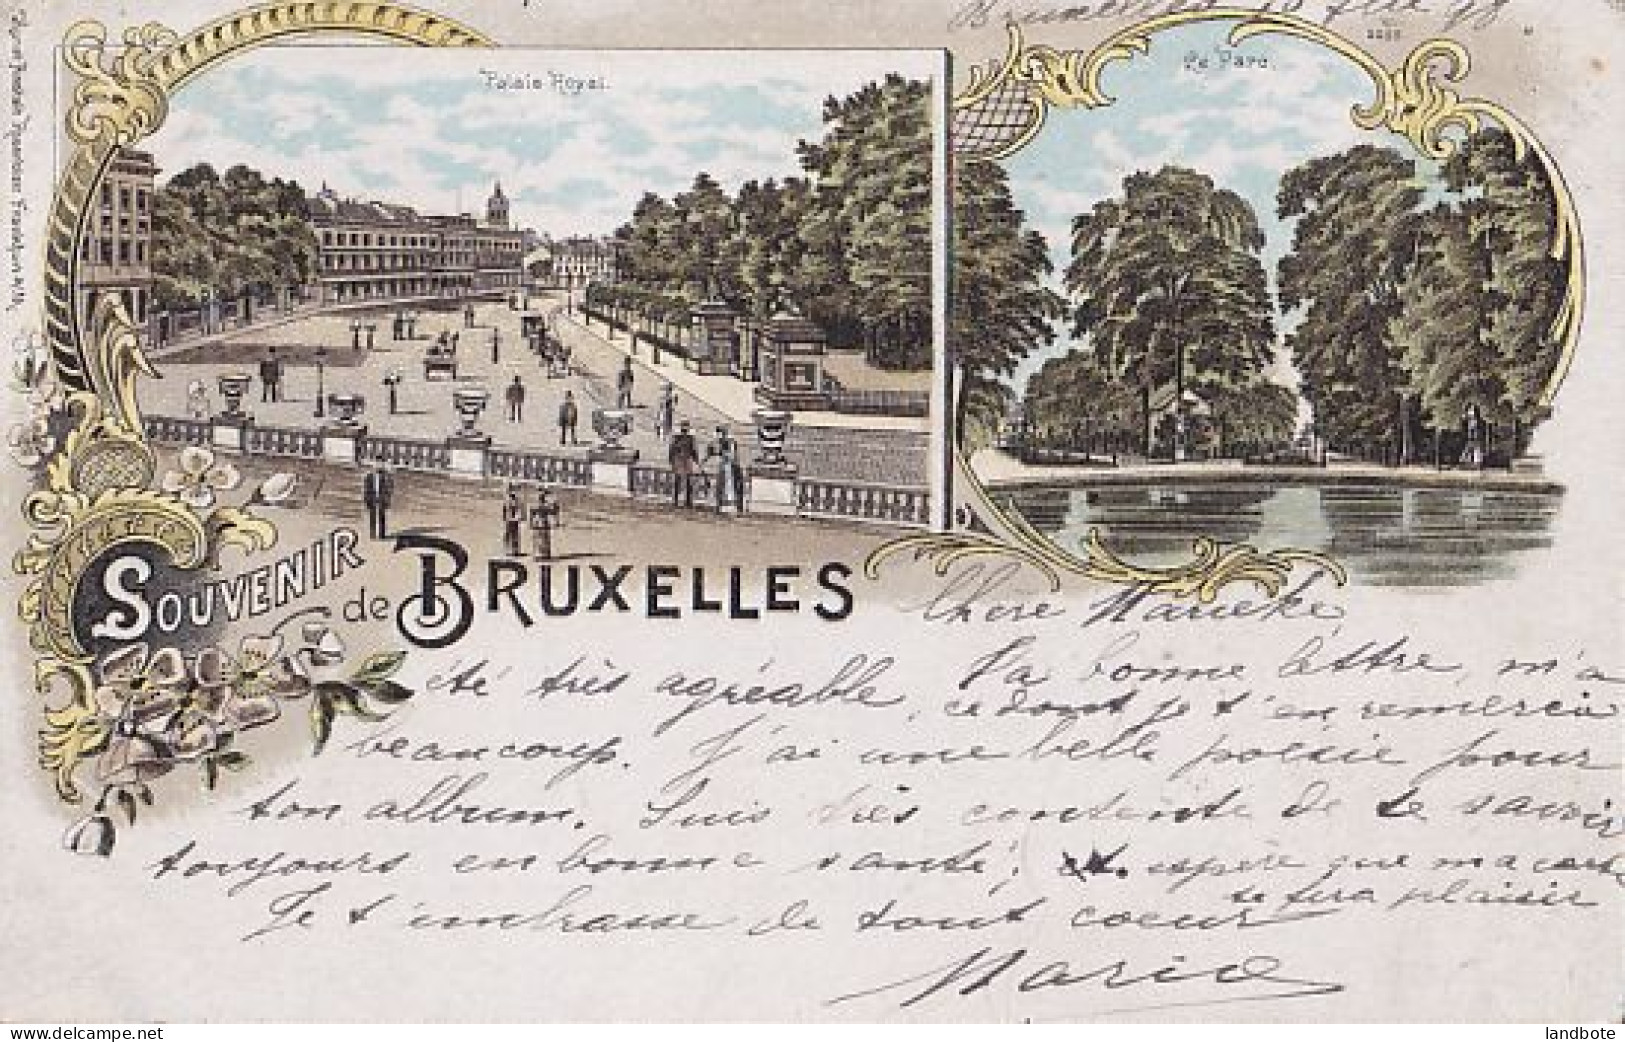 Bruxelles
Palais Royal.
Le Parc.
SOUVENIR
de BRUXELLES
Chère Marieke,
Ta bonne lettre, m'a
été très agréable, ce dont je t'en remercie
beaucoup. J'ai une belle poésie pour
ton album. Suis très contente de te savoir
toujours en bonne santé, et. espère que ma carte
te fera plaisir
Je t'embrasse de tout coeur
Marie
delcampe.net
landbote